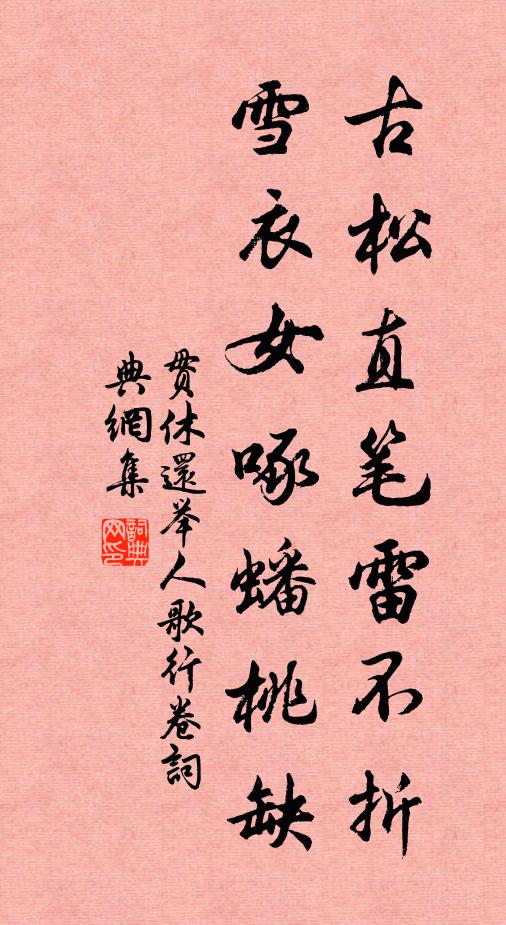 古松直笔雷不折
雪衣女啄蟠桃缺
贯休還举人歌行卷詞
典網集
詞典网印